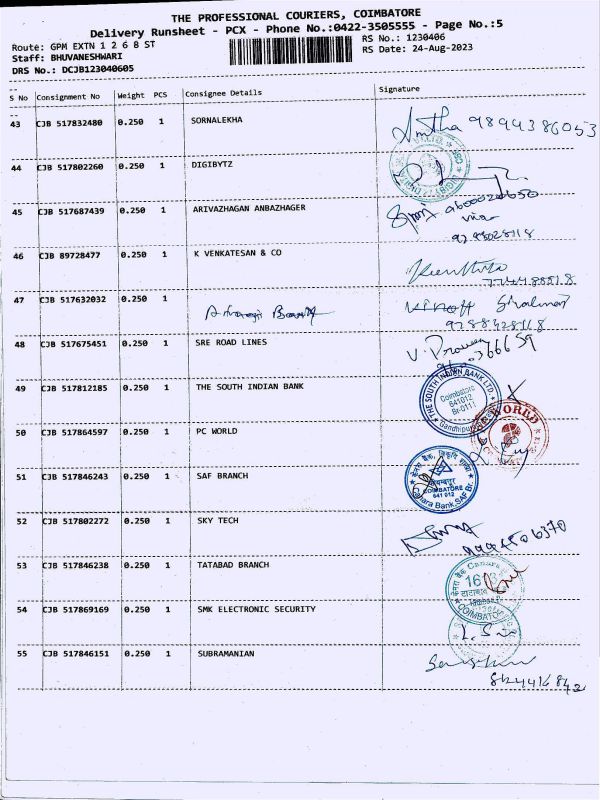 THE PROFESSIONAL COURIERS, COIMBATORE
Delivery Runsheet - PCX - Phone No.:0422-3505555 - Page No.:5
Route: GPM EXTN 1 2 6 8 ST
RS No.: 1230406
Staff: BHUVANESHWARI
RS Date: 24-Aug-2023
DRS No.: DCJB123040605
S No Consignment No Weight PCS Consignee Details Signature
43 CJB 517832480 0.250 1 SORNALEKHA
9894386053
44 CJB 517802260 0.250 1 DIGIBYTZ
45 CJB 517687439 0.250 1 ARIVAZHAGAN ANBAZHAGER
46 CJB 89728477 0.250 1 K VENKATESAN & CO
47 CJB 517632032 0.250 1
48 CJB 517675451 0.250 1 SRE ROAD LINES
49 CJB 517812185 0.250 1 THE SOUTH INDIAN BANK
THE SOUTH INDIAN BANK LTD
Coimbatore
641012
Br-0111
50 CJB 517864597 0.250 1 PC WORLD
51 CJB 517846243 0.250 1 SAF BRANCH
COIMBATORE
641 012
Canara Bank, SAF Br.
52 CJB 517802272 0.250 1 SKY TECH
53 CJB 517846238 0.250 1 TATABAD BRANCH
54 CJB 517869169 0.250 1 SMK ELECTRONIC SECURITY
55 CJB 517846151 0.250 1 SUBRAMANIAN